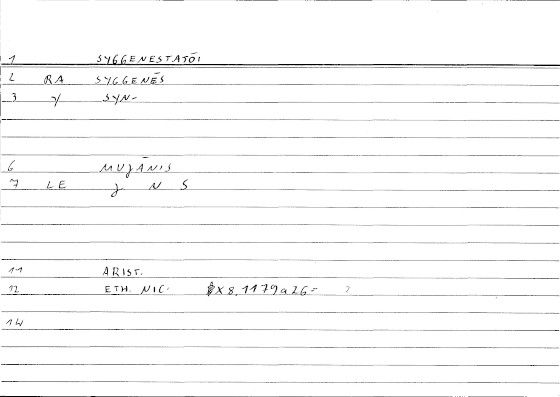 1 SYGGENESTATŌI
2 RA SYGGENĒS
3 γ SYN-
6 MUJĀNIS
7 LE J N S
11 ARIST.
12 ETH. NIC. X 8, 1179a26= ?
14